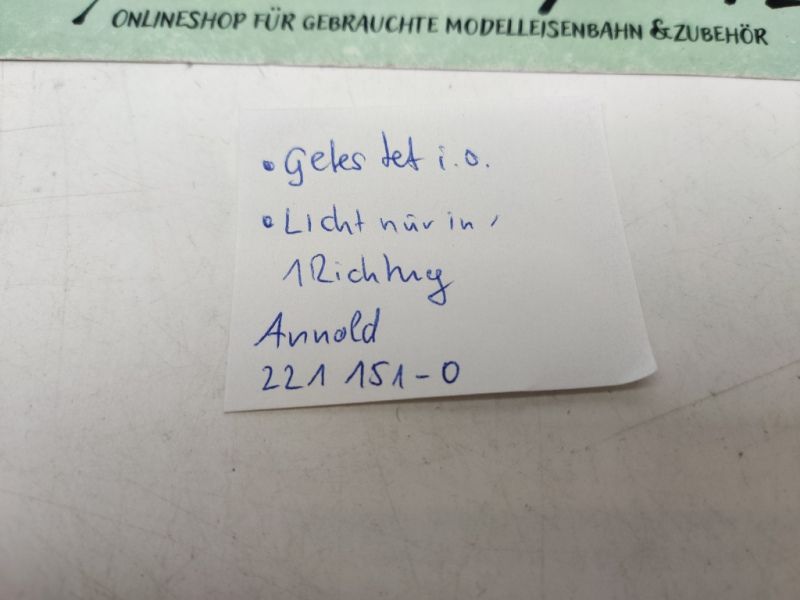 ONLINESHOP FÜR GEBRAUCHTE MODELLEISENBAHN & ZUBEHÖR
• Getestet i.o.
• Licht nur in
1 Richtung
Arnold
221 151-0